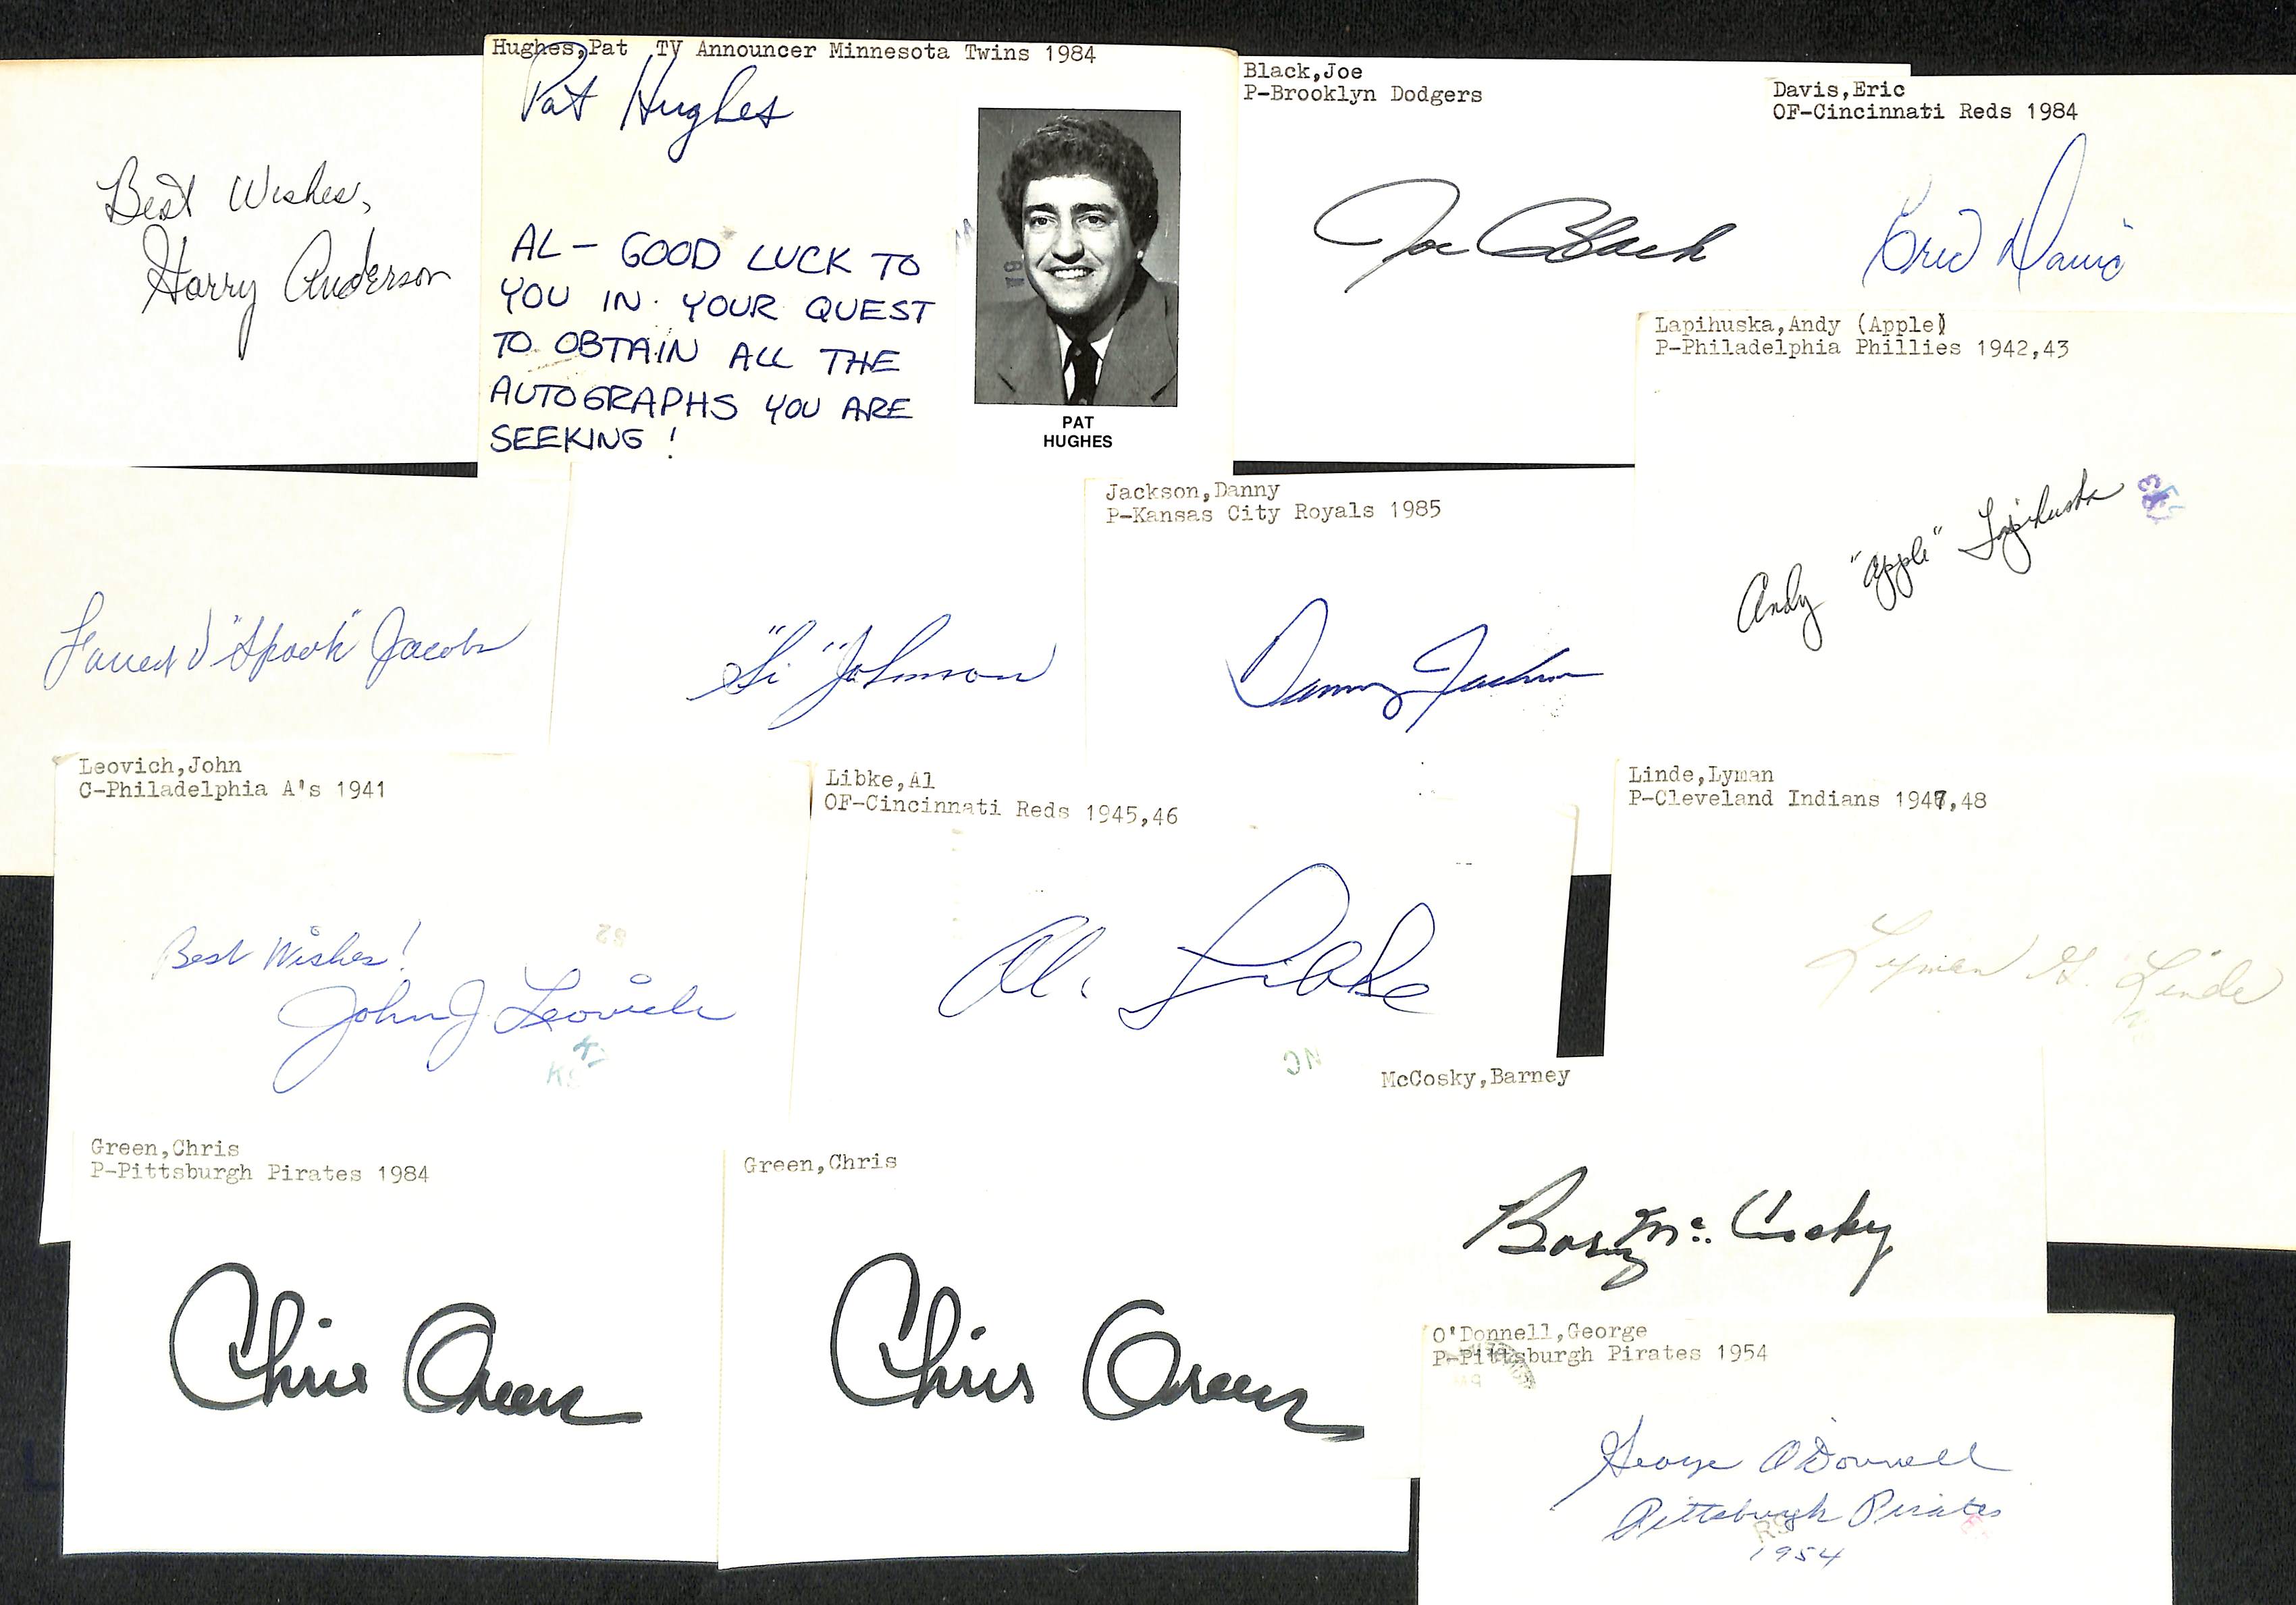 Best Wishes,
Harry Anderson
Hughes,Pat TV Announcer Minnesota Twins 1984
Pat Hughes
AL – GOOD LUCK TO
YOU IN YOUR QUEST
TO OBTAIN ALL THE
AUTOGRAPHS YOU ARE
SEEKING !
PAT
HUGHES
Black,Joe
P-Brooklyn Dodgers
Joe Black
Davis,Eric
OF-Cincinnati Reds 1984
Eric Davis
Lapihuska,Andy (Apple)
P-Philadelphia Phillies 1942,43
Andy "Apple" Lapihuska
"Spook" Jacobs
"Si" Johnson
Jackson,Danny
P-Kansas City Royals 1985
Danny Jackson
Leovich,John
C-Philadelphia A's 1941
Best Wishes!
John J. Leovich
Libke,Al
OF-Cincinnati Reds 1945,46
Al. Libke
Linde,Lyman
P-Cleveland Indians 1947,48
Lyman G. Linde
McCosky,Barney
Barney McCosky
Green,Chris
P-Pittsburgh Pirates 1984
Chris Green
Green,Chris
Chris Green
O'Donnell,George
P-Pittsburgh Pirates 1954
George O'Donnell
Pittsburgh Pirates
1954